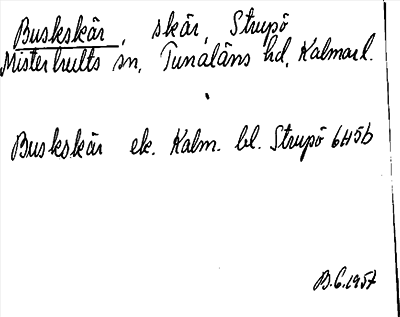 Buskskär, skär, Strupö
Misterhults sn, Tunaläns hd, Kalmar l.
Buskskär ek. Kalm. bl. Strupö 6H5b
B.G. 1957